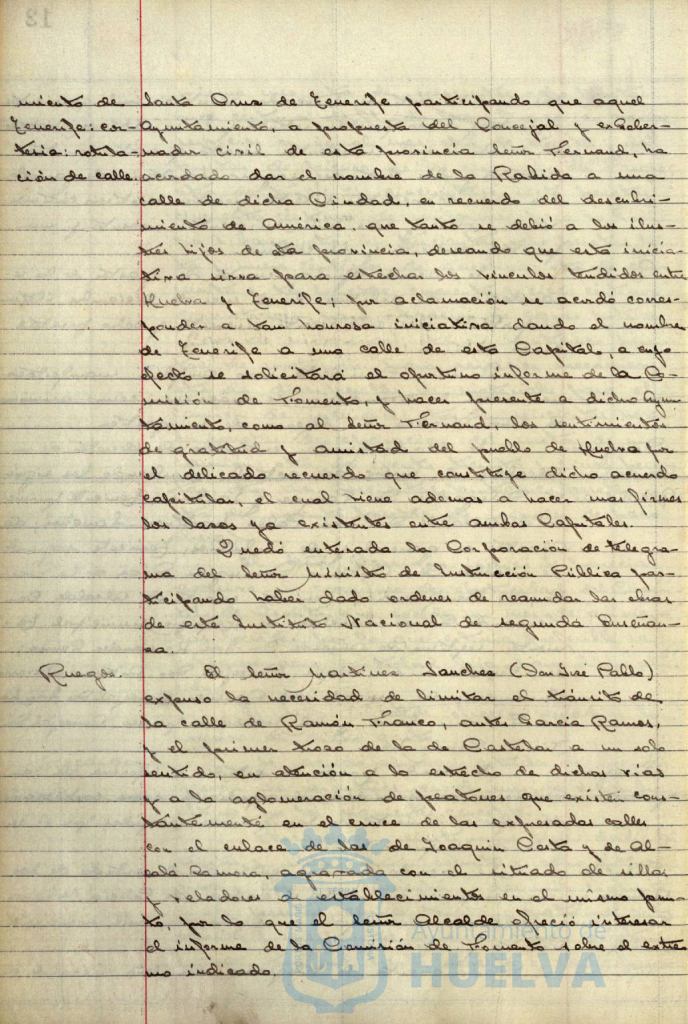 13
miento de
Tenerife: cor-
tesia: rotula-
ción de calle.
Santa Cruz de Tenerife participando que aquel
Ayuntamiento, a propuesta del Concejal y exGober-
nador civil de esta provincia Señor Fernand, ha
acordado dar el nombre de la Rabida a una
calle de dicha Ciudad, en recuerdo del descubri-
miento de América que tanto se debió a los ilus-
tres hijos de esta provincia, deseando que esta inicia-
tiva sirva para estrechar los vinculos tendidos entre
Huelva y Tenerife; por aclamación se acordó corres-
ponder a tan honrosa iniciativa dando el nombre
de Tenerife a una calle de esta Capital, a cuyo
efecto se solicitará el oportuno informe de la Co-
misión de Fomento, y hacer presente a dicho Ayun-
tamiento, como al Señor Fernand, los sentimientos
de gratitud y amistad del pueblo de Huelva por
el delicado recuerdo que constituye dicho acuerdo
capitular, el cual viene ademas a hacer mas firmes
los lazos ya existentes entre ambas Capitales.
Quedó enterada la Corporación de telegra-
ma del Señor Ministro de Instrucción Pública par-
ticipando haber dado ordenes de reanudar las obras
de este Instituto Nacional de segunda Enseñan-
za.
Ruegos.
El Señor Martinez Sanchez (Don José Pablo)
expuso la necesidad de limitar el tránsito de
la calle de Ramón Franco, antes Garcia Ramos,
y el primer trozo de la de Castelar a un solo
sentido, en atención a lo estrecho de dichas vías
y a la aglomeración de peatones que existen cons-
tantemente en el cruce de las expresadas calles
con el enlace de las de Joaquin Costa y de Al-
calá Zamora, agravada con el situado de sillas
y veladores de establecimientos en el mismo pun-
to, por lo que el Señor Alcalde ofreció interesar
el informe de la Comisión de Fomento sobre el extre-
mo indicado.
Ayuntamiento de
HUELVA